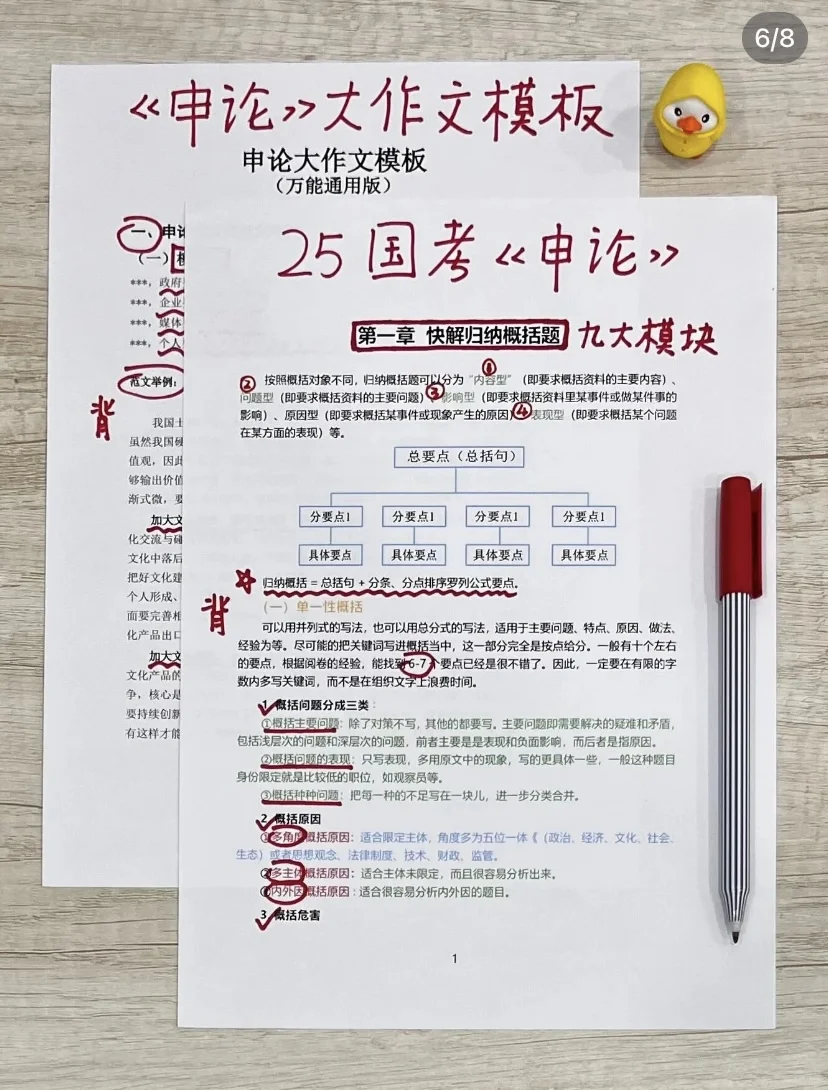 6/8
《申论》大作文模板
申论大作文模板
（万能通用版）
一、申论
（一）
***，政府
***，企业
***，媒体
***，个人
范文举例：
背
我国
虽然我国硬
值观，因此
够输出价值
渐式微，要
加大文
化交流与碰
文化中落后
把好文化建
个人形成、
面要完善相
化产品出口
加大文
文化产品的
争，核心是
要持续创新
有这样才能
25国考《申论》
第一章 快解归纳概括题 九大模块
①
② 按照概括对象不同，归纳概括题可以分为“内容型”（即要求概括资料的主要内容）、
问题型（即要求概括资料的主要问题）③影响型（即要求概括资料里某事件或做某件事的
影响）、原因型（即要求概括某事件或现象产生的原因）④表现型（即要求概括某个问题
在某方面的表现）等。
总要点（总括句）
分要点1 分要点1 分要点1 分要点1
具体要点 具体要点 具体要点 具体要点
归纳概括 = 总括句 + 分条、分点排序罗列公式要点。
背
（一）单一性概括
可以用并列式的写法，也可以用总分式的写法，适用于主要问题、特点、原因、做法、
经验为等。尽可能的把关键词写进概括当中，这一部分完全是按点给分。一般有十个左右
的要点，根据阅卷的经验，能找到 6-7 个要点已经是很不错了。因此，一定要在有限的字
数内多写关键词，而不是在组织文字上浪费时间。
1 概括问题分成三类：
①概括主要问题：除了对策不写，其他的都要写。主要问题即需要解决的疑难和矛盾，
包括浅层次的问题和深层次的问题，前者主要是是表现和负面影响，而后者是指原因。
②概括问题的表现：只写表现，多用原文中的现象，写的更具体一些，一般这种题目
身份限定就是比较低的职位，如观察员等。
③概括种种问题：把每一种的不足写在一块儿，进一步分类合并。
2 概括原因
①多角度概括原因：适合限定主体，角度多为五位一体《（政治、经济、文化、社会、
生态）或者思想观念、法律制度、技术、财政、监管。
②多主体概括原因：适合主体未限定，而且很容易分析出来。
③内外因概括原因：适合很容易分析内外因的题目。
3 概括危害
1